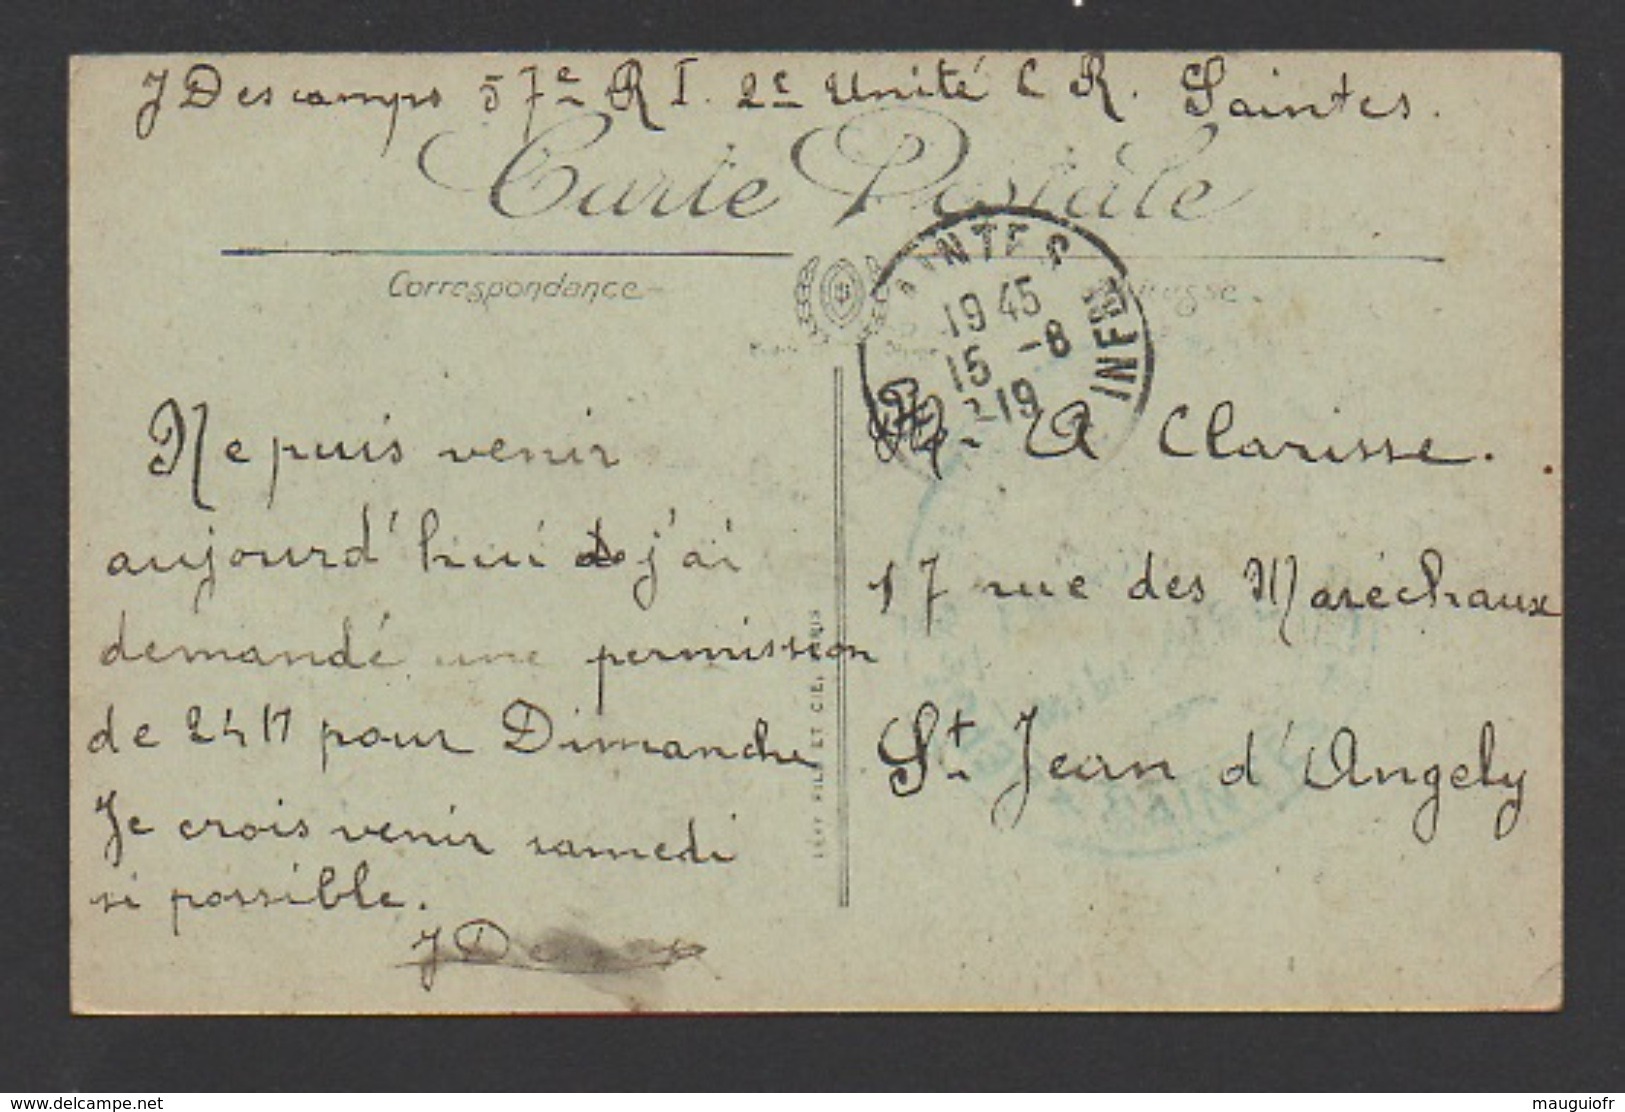 J Descamps 57e R I. 2e Unité C R. Saintes.
Carte Postale
Correspondance
SAINTES
INFRE
19 45
15 -8
19
Ne puis venir
aujourd'hui j'ai
demandé une permission
de 24 H pour Dimanche
Je crois venir samedi
si possible.
J De
A Clarisse.
17 rue des Maréchaux
St Jean d'Angely
LÉVY FILS ET CIE, PARIS
www.delcampe.net
mauguiofr